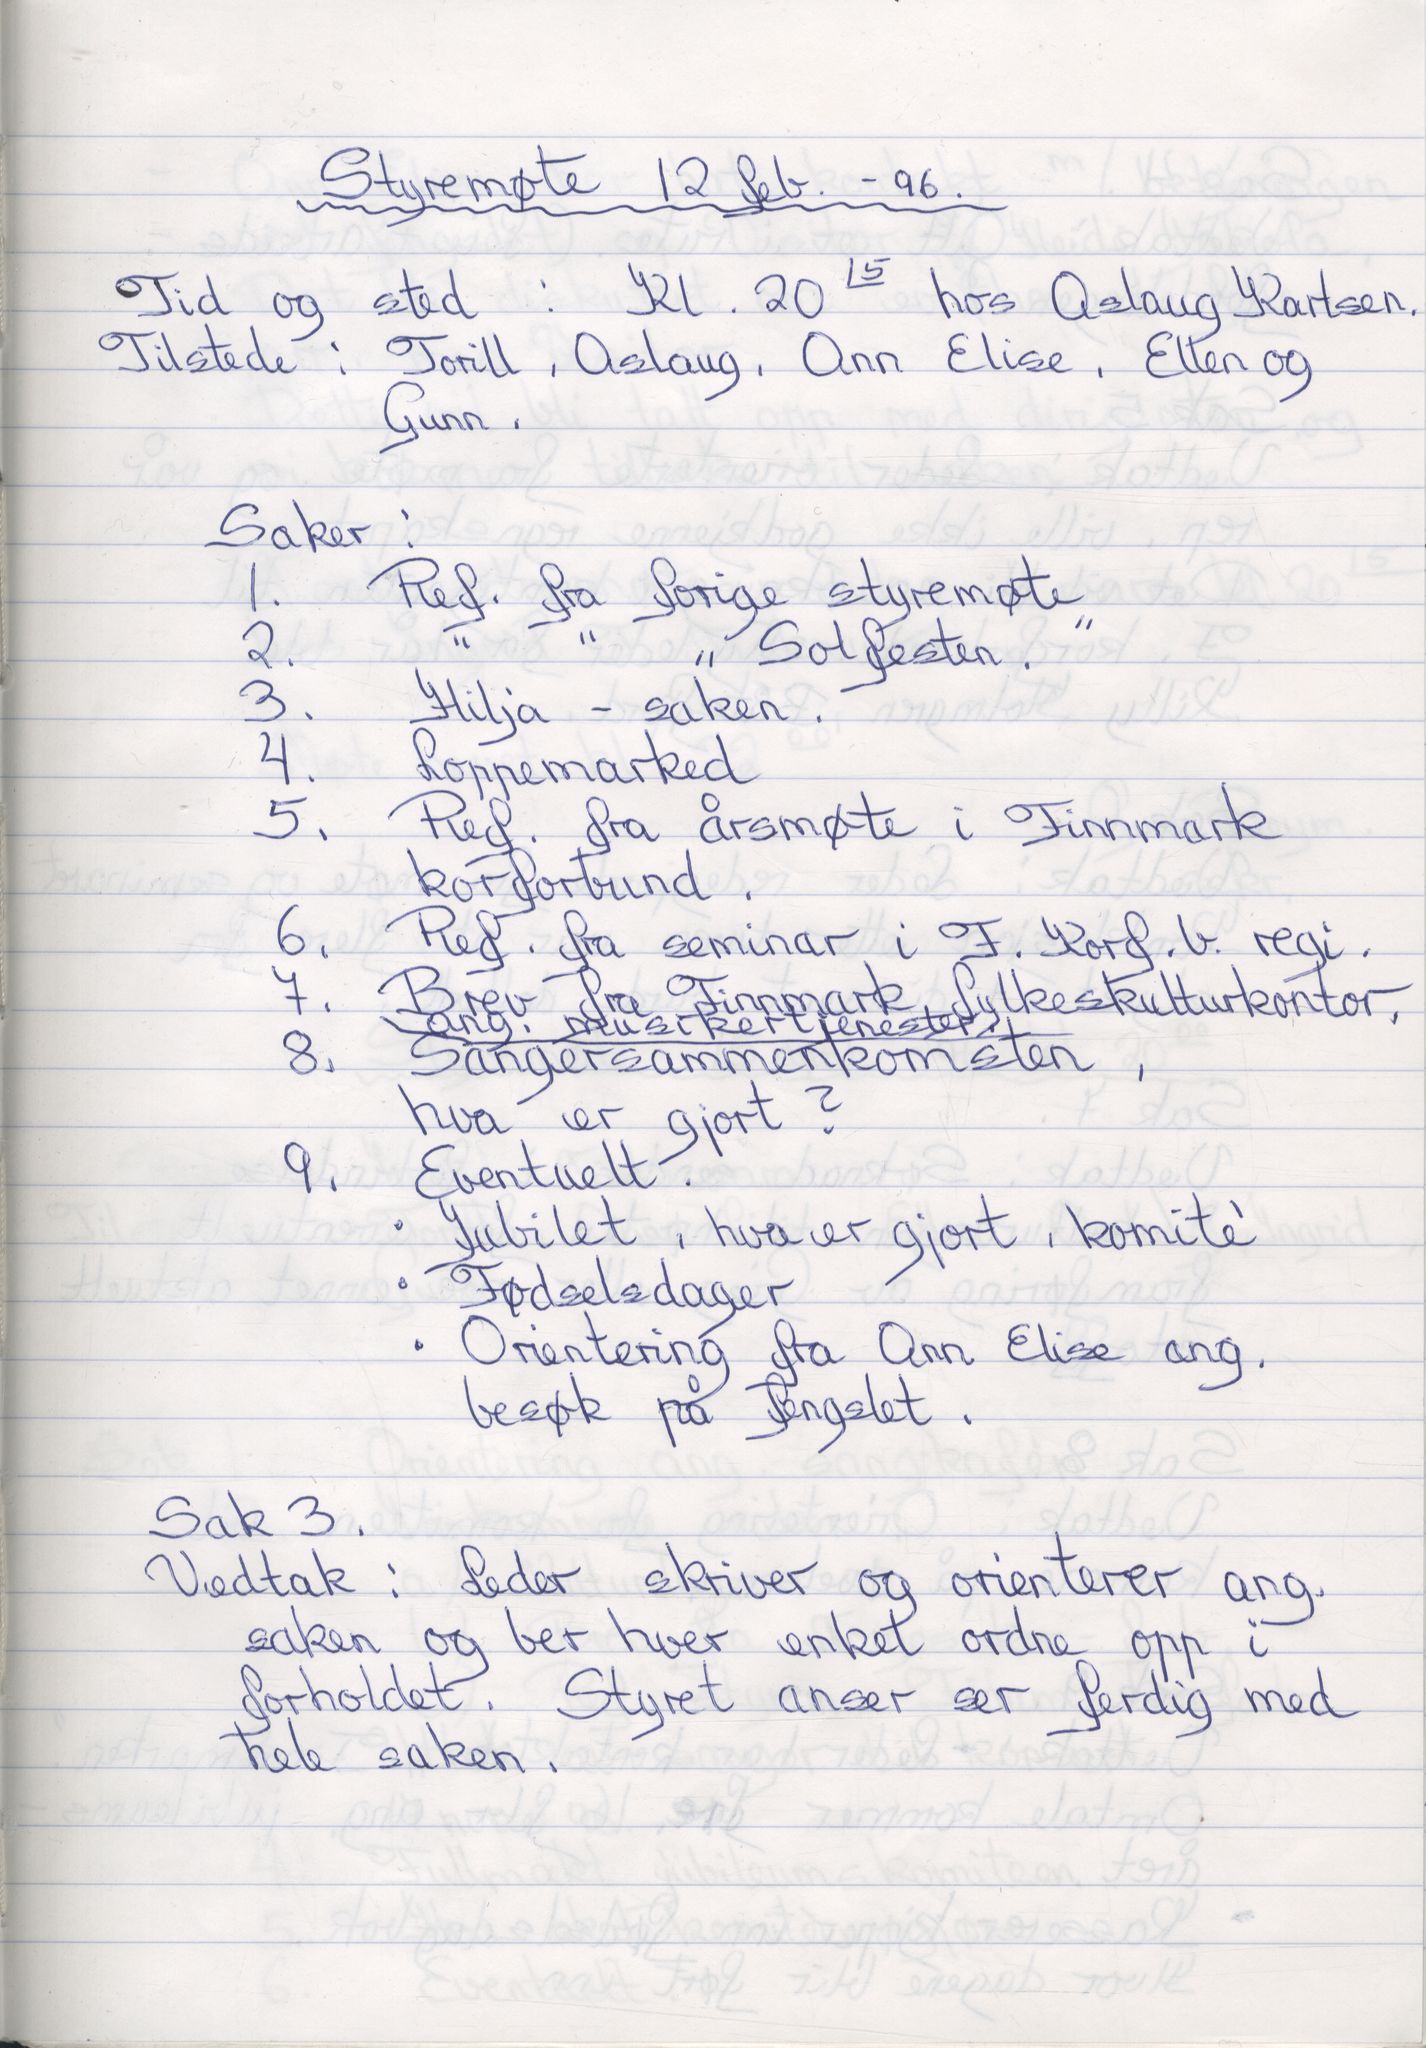 Styremøte 12 feb. - 96.
Tid og sted : Kl. 20 15 hos Aslaug Karlsen.
Tilstede : Torill, Aslaug, Ann Elise, Ellen og
Gunn.
Saker :
1. Ref. fra forige styremøte
2. " " " Solfesten. "
3. Hilja - saken.
4. Loppemarked
5. Ref. fra årsmøte i Finnmark
korforbund.
6. Ref. fra seminar i F. Korf. b. regi.
7. Brev fra Finnmark fylkeskulturkontor,
ang. musikertjenester.
8. Sangersammenkomsten,
hva er gjort ?
9. Eventuelt.
• Jubilet, hva er gjort, komitè
• Fødselsdager
• Orientering fra Ann Elise ang.
besøk på fengslet.
Sak 3.
Vedtak : Leder skriver og orienterer ang.
saken og ber hver enkel ordne opp i
forholdet. Styret anser ser ferdig med
hele saken.